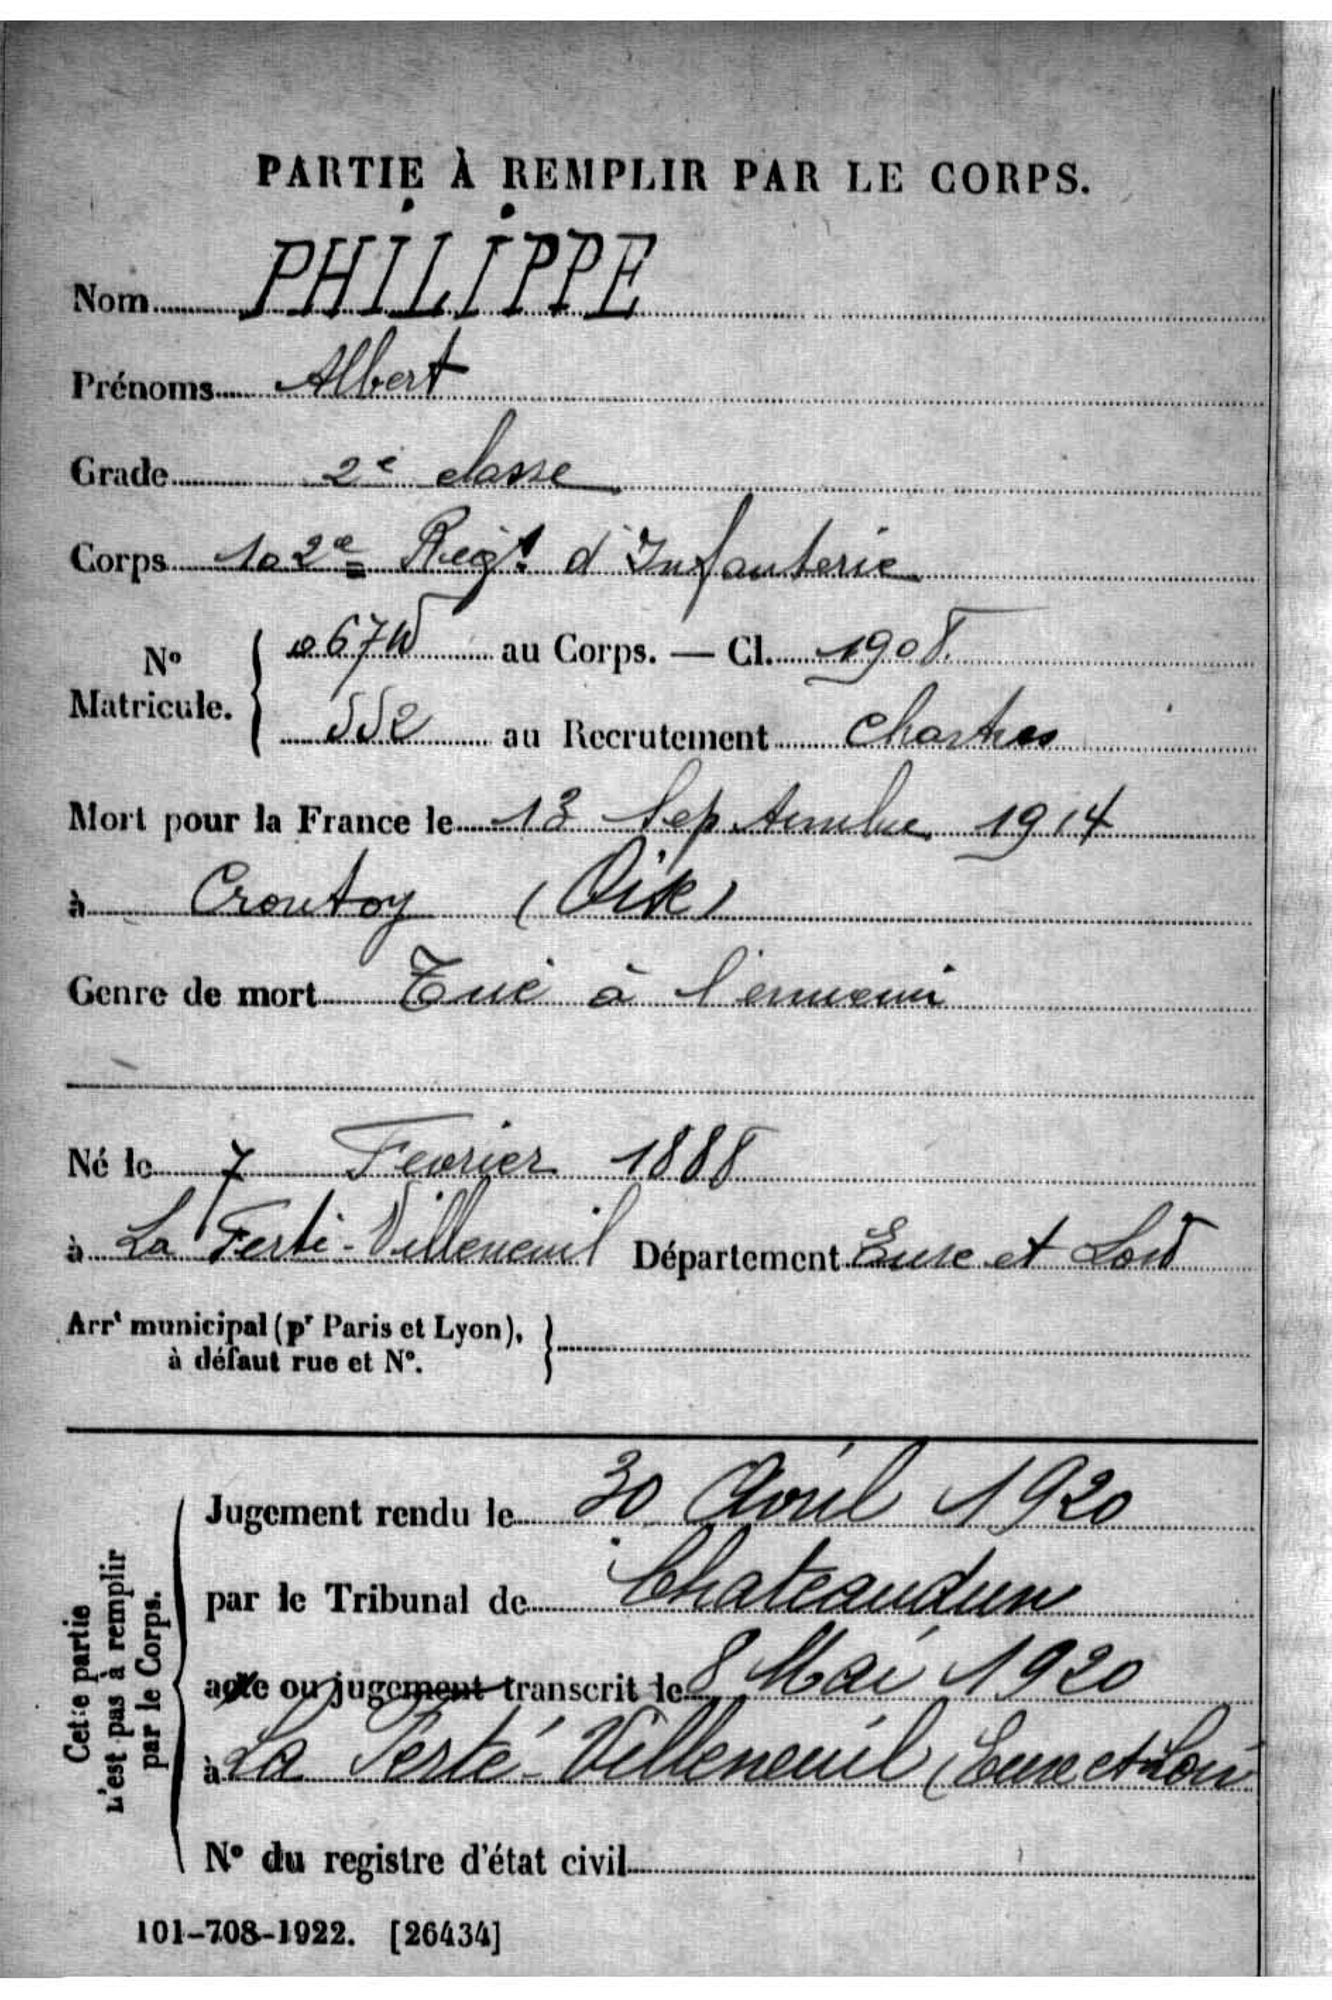 PARTIE À REMPLIR PAR LE CORPS.
Nom PHILIPPE
Prénoms Albert
Grade 2e classe
Corps 102e Régt d'Infanterie
No Matricule. { au Corps. — Cl. 1908
552 au Recrutement Chartres
Mort pour la France le 13 Septembre 1914
à Croutoy (Oise)
Genre de mort Tué à l'ennemi
Né le 7 Fevrier 1888
à La Ferté-Villeneuil Département Eure et Loir
Arrt municipal (pr Paris et Lyon), }
à défaut rue et No.
Cette partie
n'est pas à remplir
par le Corps.
Jugement rendu le 30 Avril 1920
par le Tribunal de Chateaudun
acte ou jugement transcrit le 8 Mai 1920
à La Ferté-Villeneuil (Eure et Loir
No du registre d'état civil
101-708-1922. [26434]